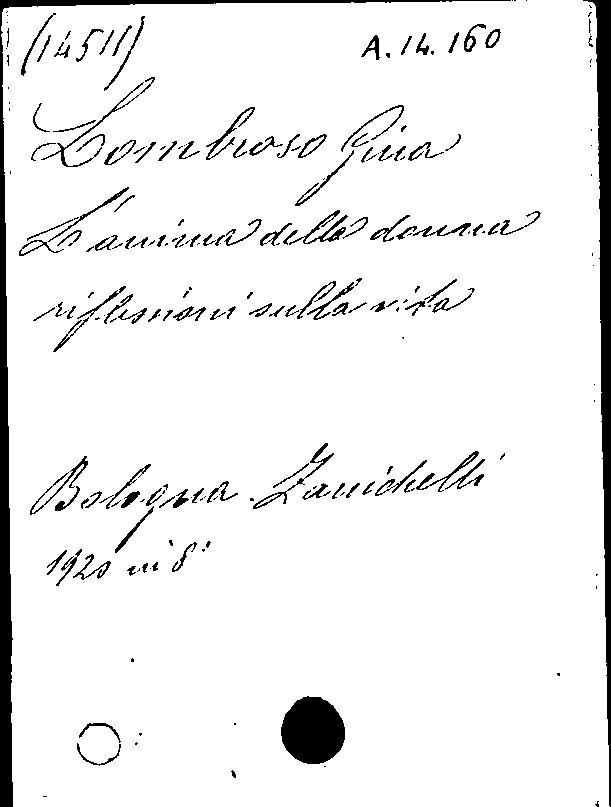 (14511) A.14.160
Lombroso Gina
L'anima della donna
riflessioni sulla vita
Bologna. Zanichelli
1920 in 8°